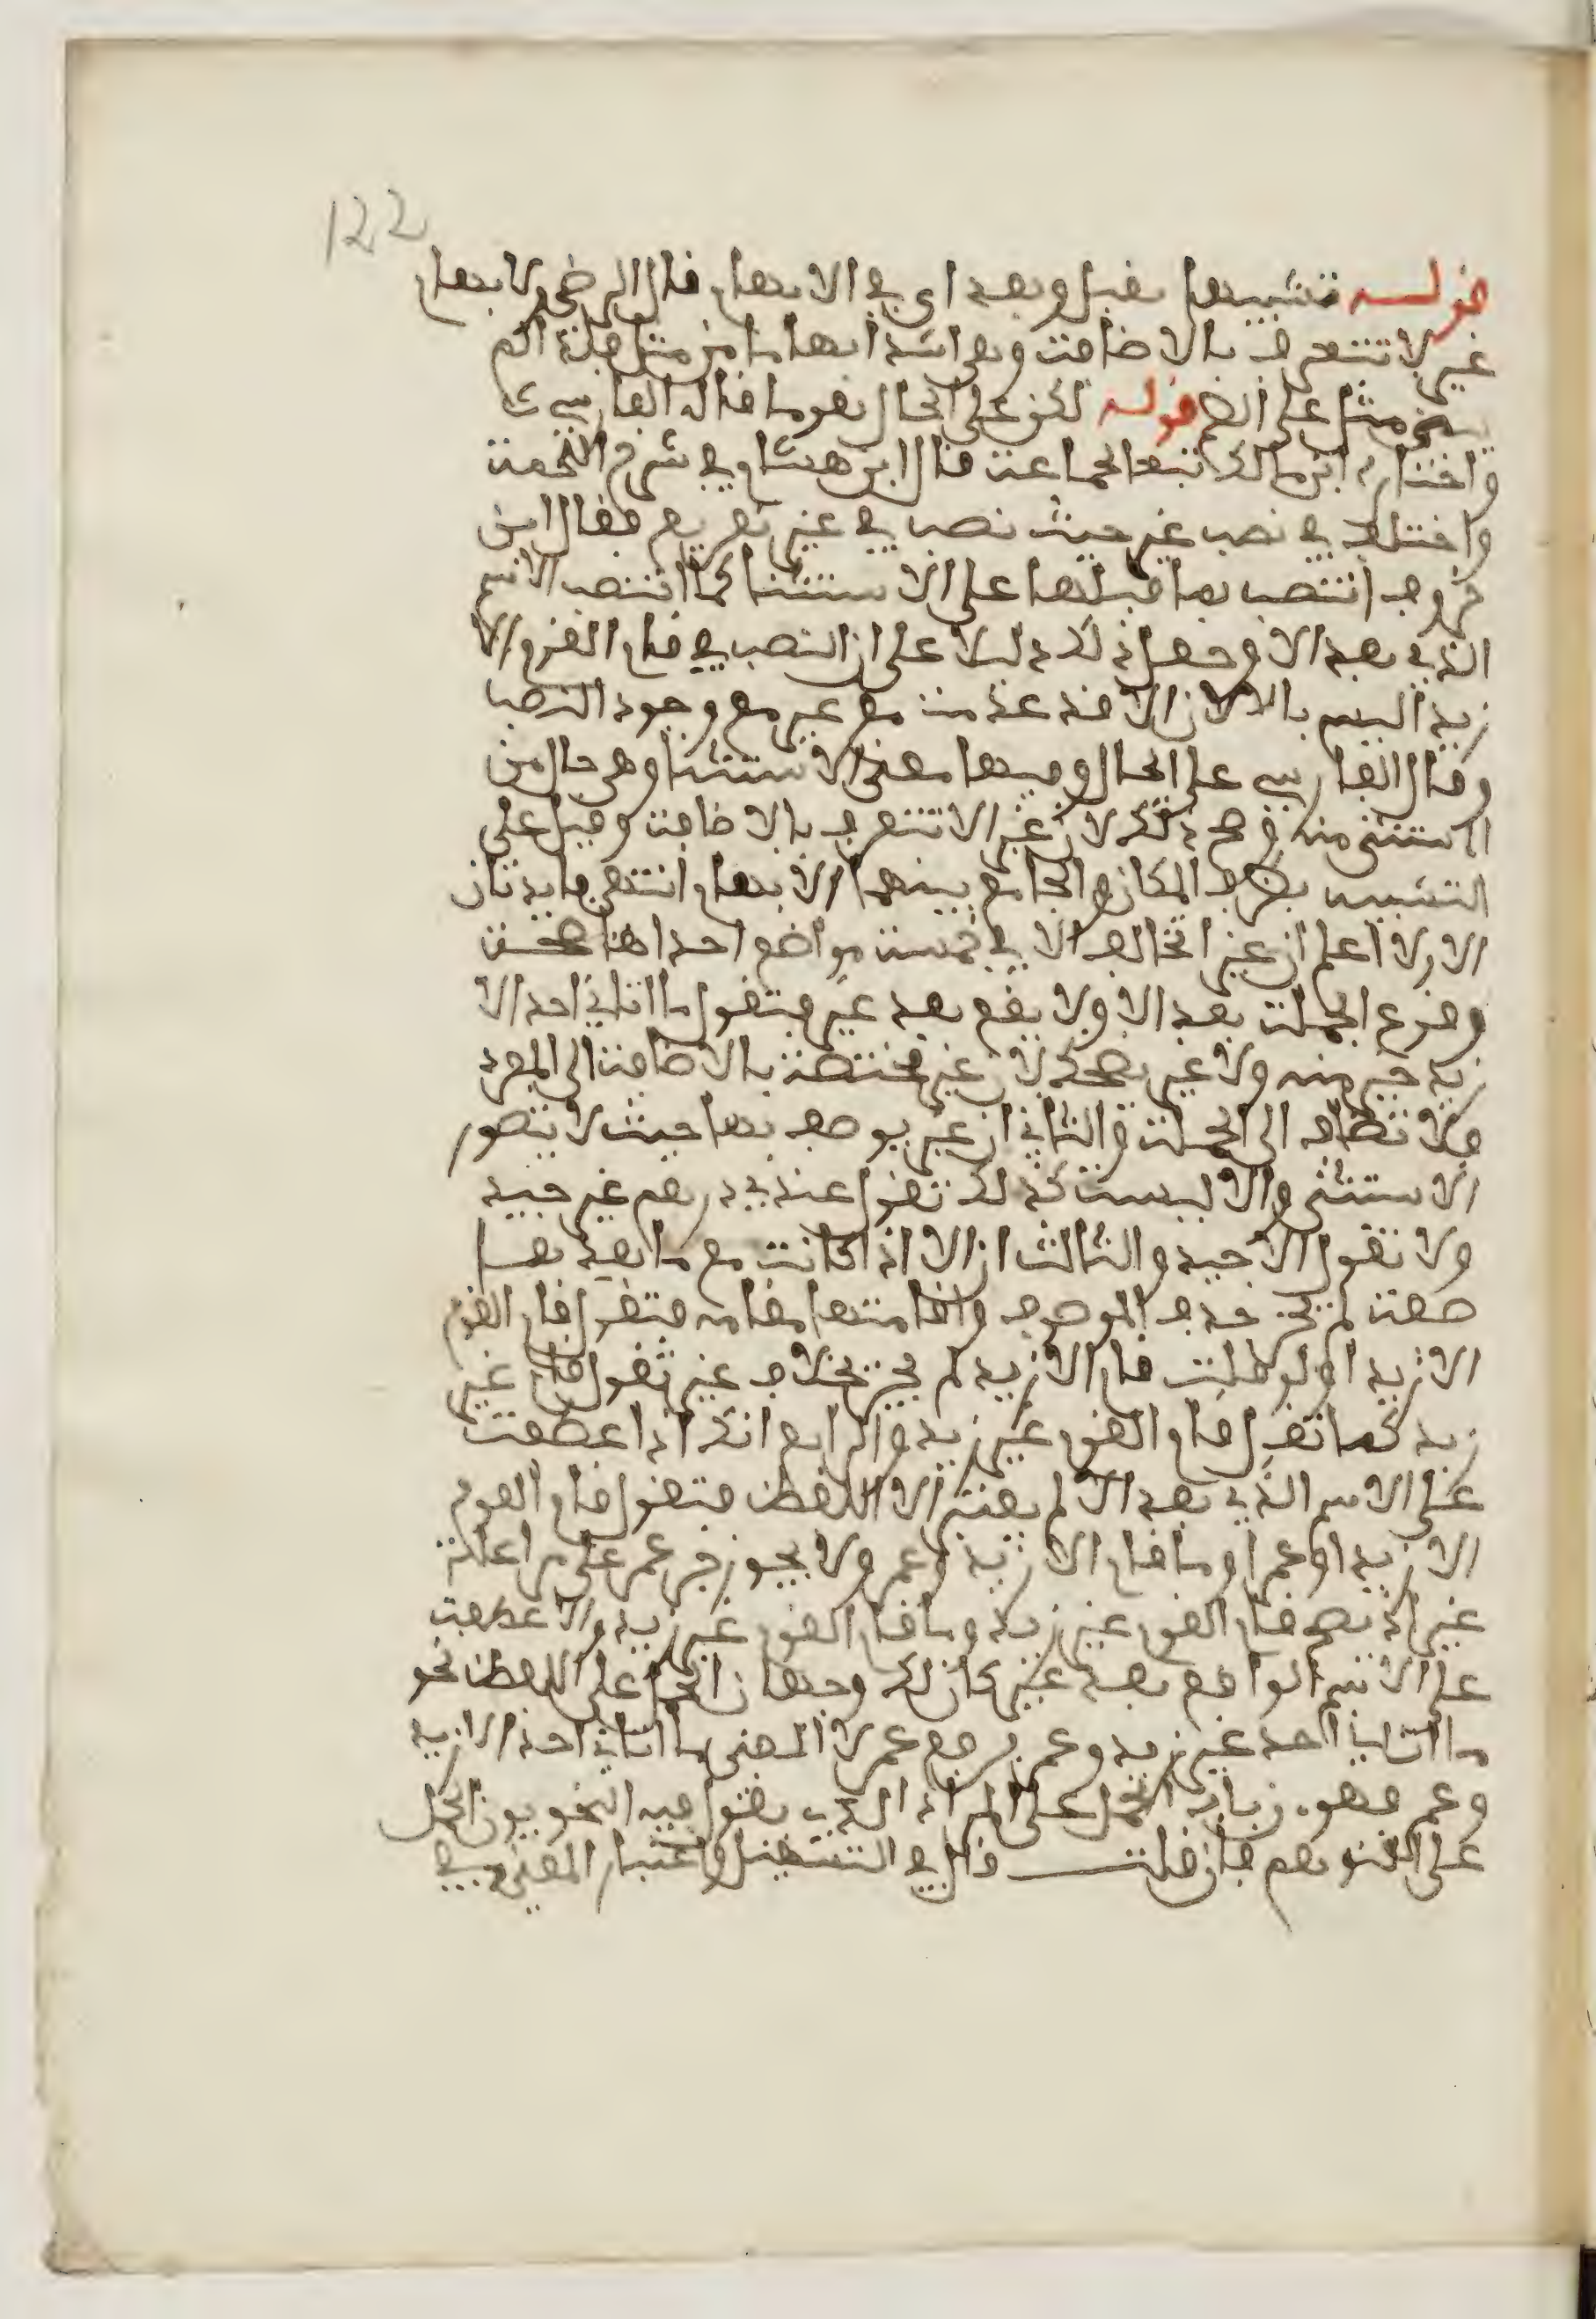 122
قوله تشبيها بقبل وبعد اي في الابهام قال الرضي ولابهام
غير لا تتعرف بالاضافة وهي اشد ابهاما من مثل فلذا لم
يبن مثل على الضم قوله لكن على الحال بقوما قاله الفارسي
واختاره ابن مالك تبعا لجماعة قال ابن هشام في شرح اللمحة
واختلف في نصب غير حيث نصب في غير تفريع فقال ابن
خروف انتصب بما قبلها على الاستثنا كما انتصب الاسم
الذي بعد الا وجعل ذلك دليلا على ان النصب في قام القوم الا
زيدا ليس بالا لان الا قد عدمت مع غير مع وجود النصب
وقال الفارسي على الحال وفيها معنى الاستثنا وهي حال من
المستثنى منه وصح ذلك لان غير لا تتعرف بالاضافة وقيل على
التشبيه بظرف المكان والجامع بينهما الابهام انتهى فايدتان
الاولى اعلم ان غير تخالف الا في خمسة مواضع احداها صحة
وقوع الجملة بعد الا ولا يقع بعد غير فتقول ما اتاني احد الا
زيد خير منه ولا غير يصح لان غير مختصة بالاضافة الى المفرد
ولا تضاف الى الجملة والثاني ان غير يوصف بها حيث لا يتصور
الاستثنى والا ليست كذلك تقول عندي درهم غير جيد
ولا تقول الا جيد والثالث ان الا اذا كانت مع ما بعدها
صفة لم يجز حذف الموصوف واقامتها مقامه فتقول قام القوم
الا زيدا ولو قلت قام الا زيد لم يجز بخلاف غير تقول قام غير
زيد كما تقول قام القوم غير زيد والرابع انك اذا عطفت
على الاسم الذي بعد الا لم يعتبر الا اللفظ فتقول قام القوم
الا زيدا وعمرا وما قام الا زيد وعمر ولا يجوز جر عمر على مراعاة
غير اذ يصح قام القوم غير زيد وما قام القوم غير زيد واذا عطفت
على الاسم الواقع بعد غير كان لك وجهان الحمل على اللفظ نحو
ما اتاني احد غير زيد وعمر برفع عمر لان المعنى ما اتاني احد الا زيد
وعمر فهو من باب الحمل على المراد الذي يقول فيه النحويون الحمل
على التوهم فان قلت قال في التسهيل واعتبار المعنى في